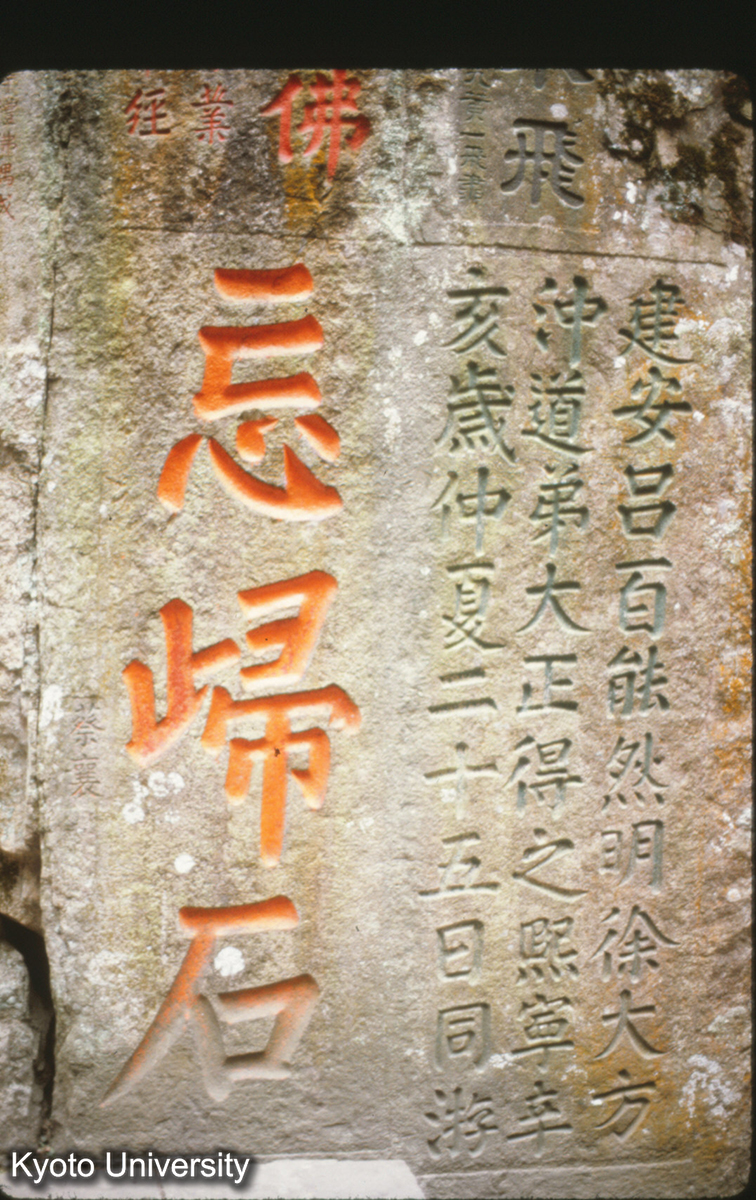 飛
佛
業
建安呂百能然明徐大方
沖道弟大正得之熙寧辛
亥歲仲夏二十五日同游
忘歸石
蔡襄
Kyoto University